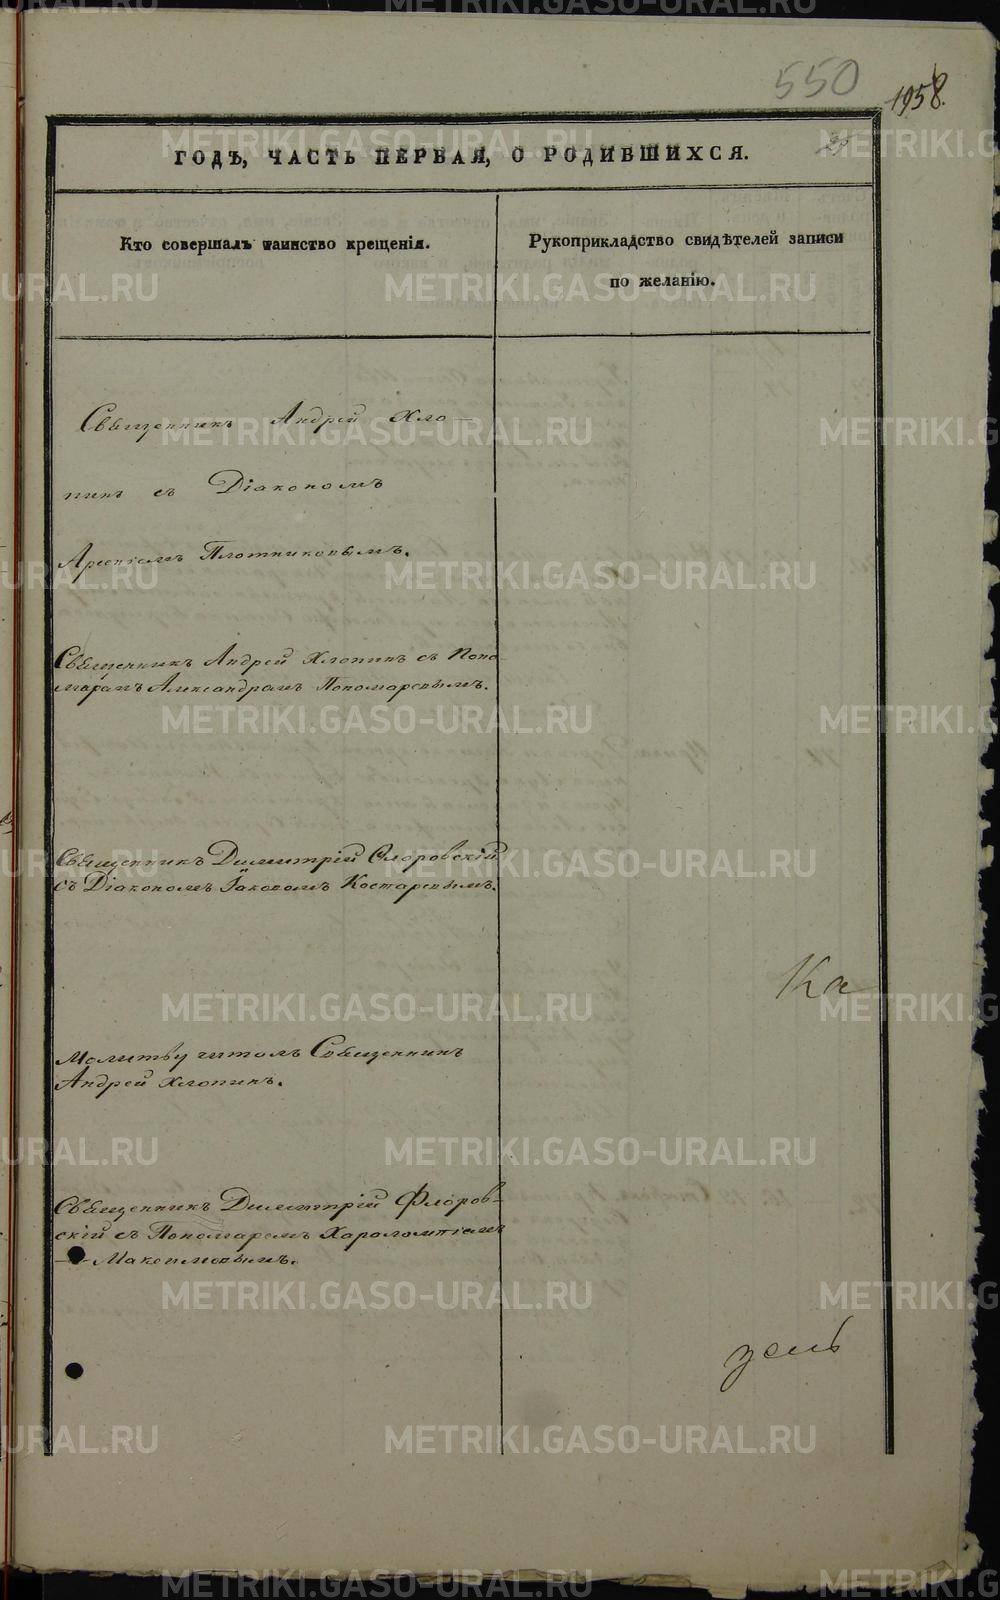 550
1958.
25
ГОДЪ, ЧАСТЬ ПЕРВАЯ, О РОДИВШИХСЯ.
Кто совершалъ таинство крещенія.
Рукоприкладство свидѣтелей записи
по желанію.
Священникъ Андрей Хло-
пинъ съ Діакономъ
Арсеніемъ Плотниковымъ.
Священникъ Андрей Хлопинъ съ Поно-
маремъ Александромъ Пономаревымъ.
Священникъ Димитрій Флоровскій
съ Діакономъ Іаковомъ Костаревымъ.
Ка
Молитву читалъ Священникъ
Андрей Хлопинъ.
Священникъ Димитрій Флоров-
скій съ Пономаремъ Харалампіемъ
Максимовымъ.
зенъ
METRIKI.GASO-URAL.RU